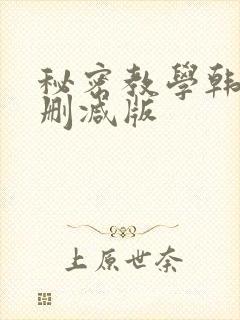 秘密教學韩
删减版
上原世奈